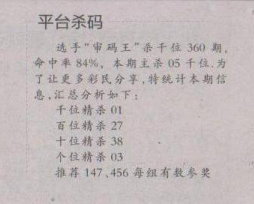 平台杀码
选手“审码王”杀千位 360 期,
命中率 84%。本期主杀 05 千位、为
了让更多彩民分享,特统计本期信
息,汇总分析如下:
千位精杀 01
百位精杀 27
十位精杀 38
个位精杀 03
推荐 147、456 每组有数参奖